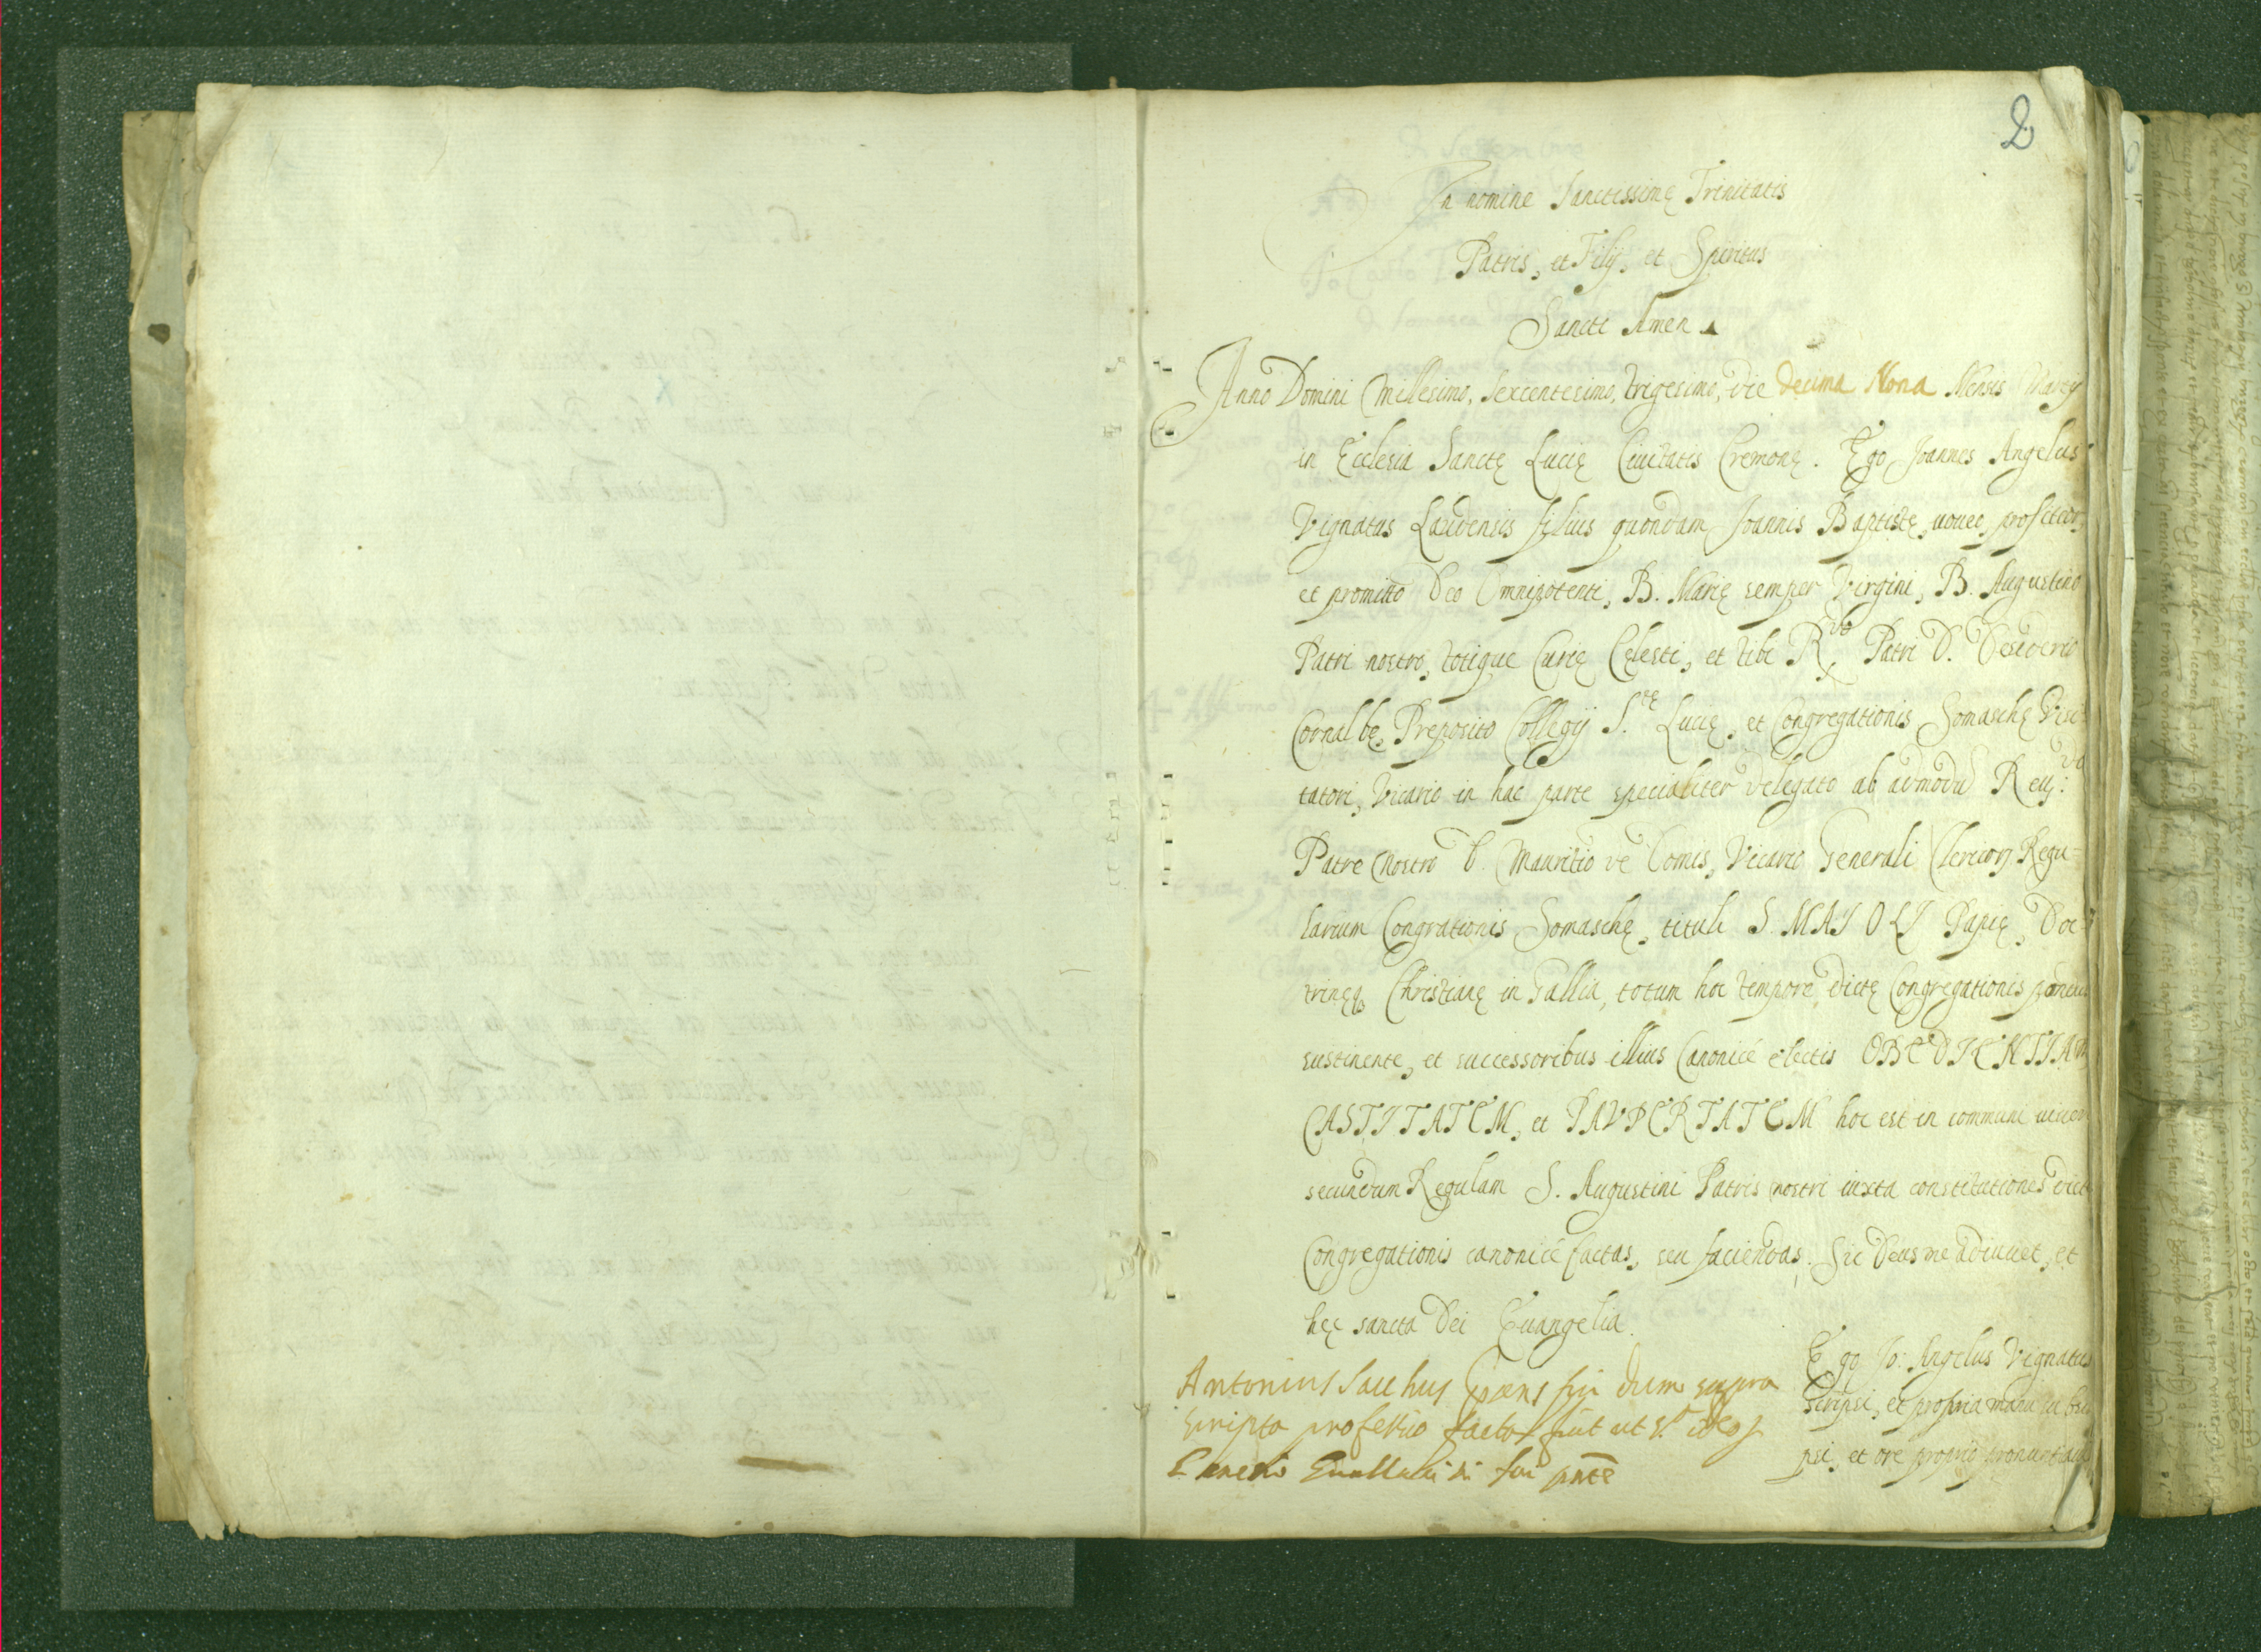 2
In nomine Sanctissimę Trinitatis
Patris, et Filij, et Spiritus
Sancti Amen
Anno Domini Millesimo, Sexcentesimo, trigesimo, die decima Nona Mensis Martij
in Ecclesia Sanctę Lucię Ciuitatis Cremonę. Ego Joannes Angelus
Vignatus Laudensis filius quondam Joannis Baptistę, uoueo, profiteor,
et promitto Deo Omnipotenti, B. Marię semper Virgini, B. Augustino
Patri nostro, totique Curię Celesti, et tibi R.do Patri D. Desiderio
Cornalbę, Preposito Collegij S.tę Lucię, et Congregationis Somaschę Visi-
tatori, Vicario in hac parte specialiter delegato ab admodū Reu:do
Patre nostro D. Mauritio de Comis, Vicario Generali Clericorum Regu-
larium Congrationis Somaschę, tituli S. MAJOLJ Papię, Doc-
trinęq. Christianę in Gallia, totum hoc tempore dictę Congregationis
sustinente, et successoribus illius Canonicé electis OBEDIENTIAM
CASTITATEM, et PAVPERTATEM hoc est in communi
secundum Regulam S. Augustini Patris nostri iuxta constitutiones dict
Congregationis canonicé factas, seu faciendas. Sic Deus me adiuuet, et
hęc sancta Dei Euangelia.
Ego Jo: Angelus Vignatus
scripsi, et propria manu subscri
psi, et ore proprio pronuntiaui
Antonius Sacchus prens fui dum supra
scripta professio facta fuit ut s.a
fui pnte